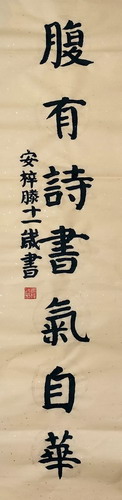 腹有詩書氣自華
安梓滕十一歲書